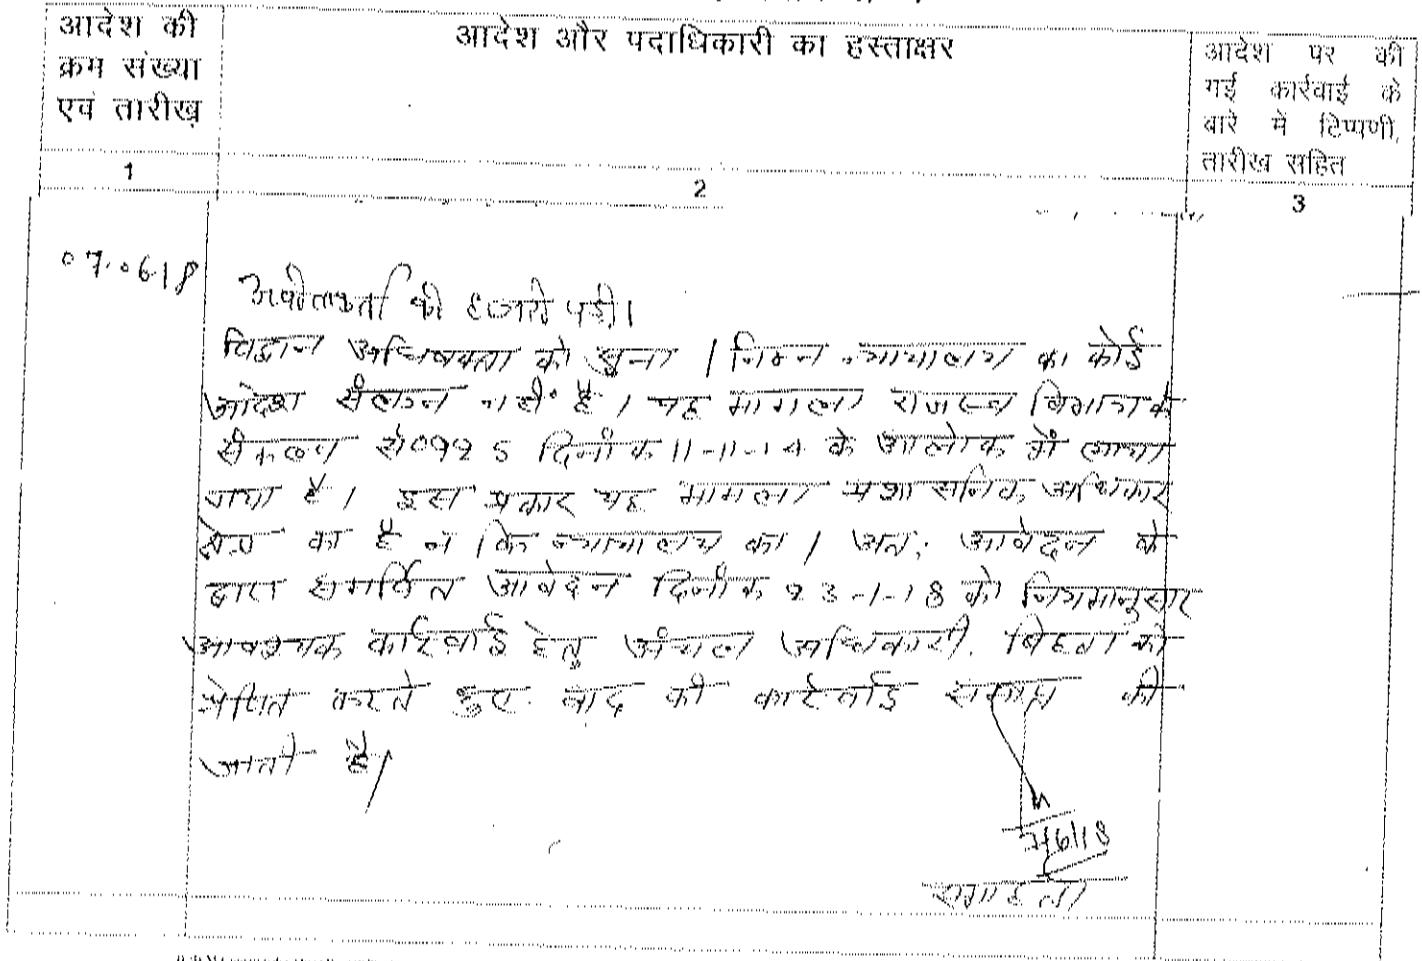 आदेश की
क्रम संख्या
एवं तारीख
आदेश और पदाधिकारी का हस्ताक्षर
आदेश पर की
गई कार्रवाई के
बारे में टिप्पणी,
तारीख सहित
1
2
3
07.06.18
अपीलकर्ता की हाजरी पड़ी।
विद्वान अधिवक्ता को सुना । निम्न न्यायालय का कोई
आदेश संलग्न नहीं है । यह मामला राजस्व विभाग के
संकल्प सं० दिनांक 11-11-14 के आलोक में लाया
गया है । इस प्रकार यह मामला प्रशासनिक अधिकार
क्षेत्र का है न कि न्यायालय का । अतः आवेदन के
द्वारा समर्पित आवेदन दिनांक 23-1-18 को नियमानुसार
आवश्यक कार्रवाई हेतु अंचल अधिकारी, बिहटा को
प्रेषित करते हुए वाद की कार्रवाई समाप्त की
जाती है।
7/6/18
समाहर्ता